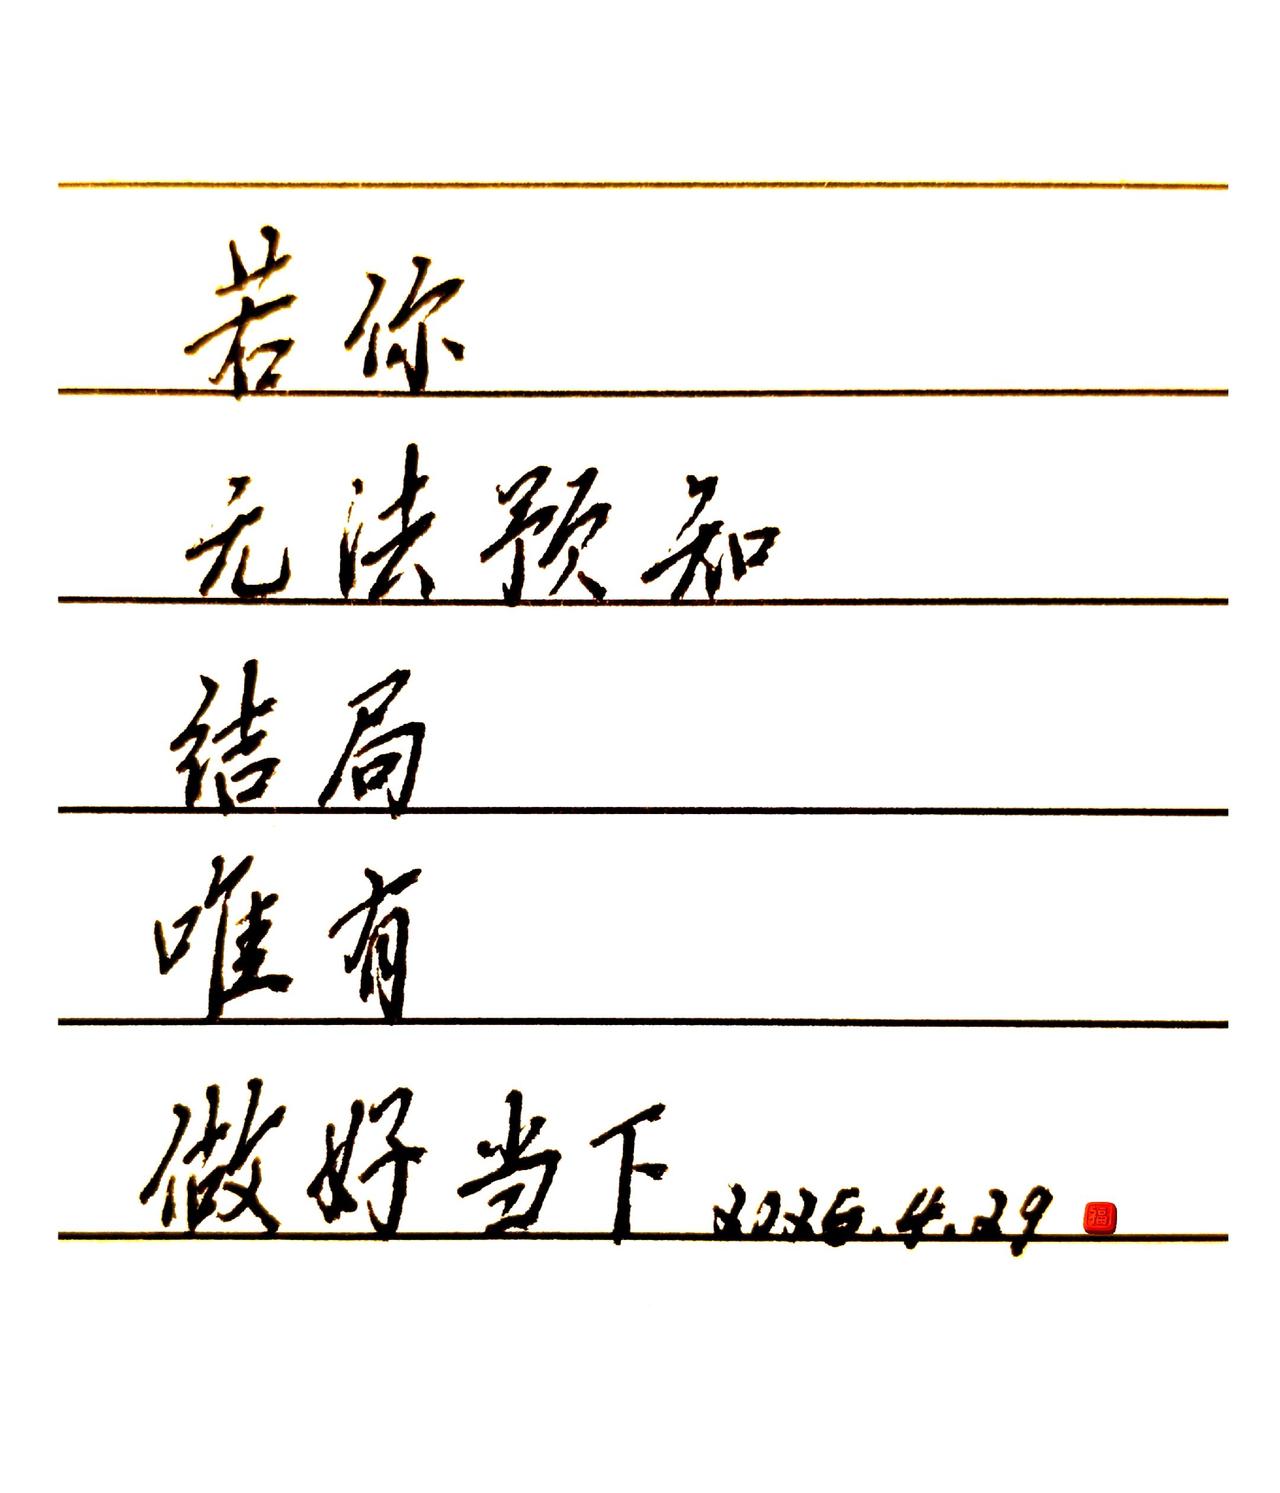 若你
无法预知
结局
唯有
做好当下 2026.4.29 福